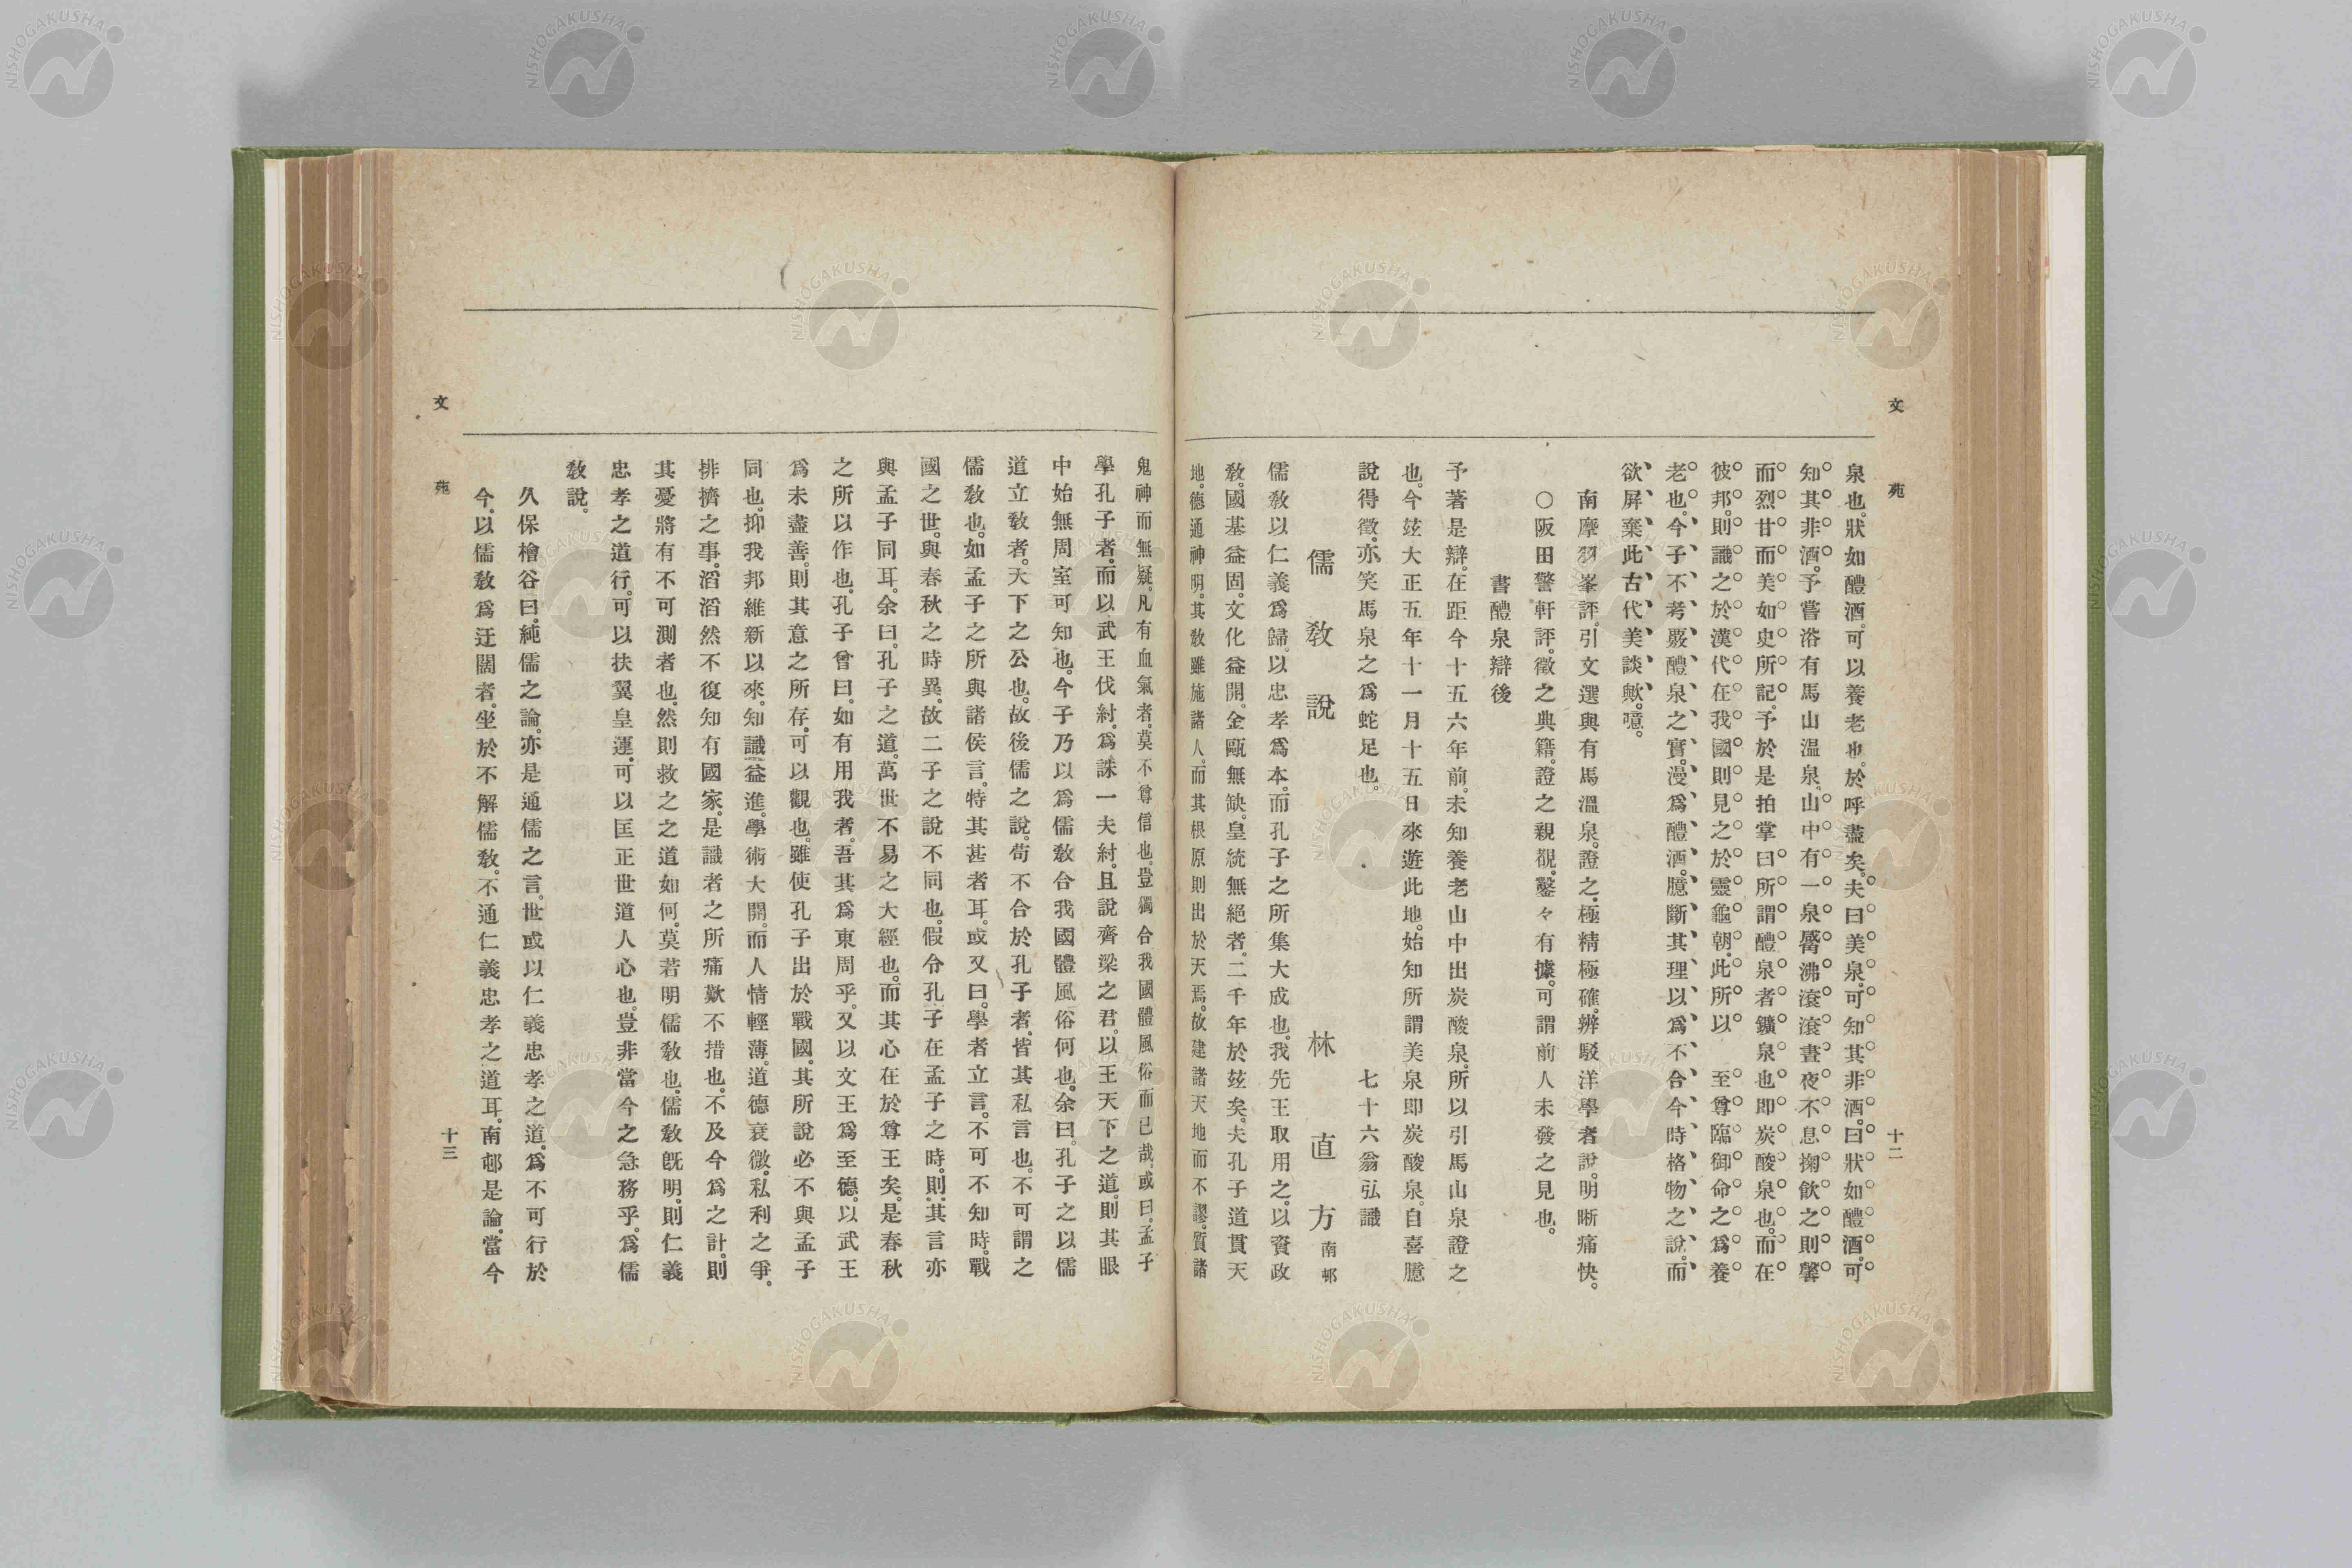 文苑
十二
泉也。狀如醴酒。可以養老也。於呼盡矣。夫曰美泉。可知其非酒。曰狀如醴酒。可
知其非酒。予嘗浴有馬山温泉。山中有一泉。觱沸滾滾晝夜不息。掬飮之則馨
而烈甘而美如史所記。予於是拍掌曰。所謂醴泉者鑛泉也。即炭酸泉也。而在
彼邦。則識之於漢代在我國則見之於靈龜朝。此所以　至尊臨御命之爲養
老也。今子不考覈醴泉之實。漫爲醴酒。臆斷其理以爲不合今時格物之說。而
欲屏棄此古代美談歟。噫。
南摩羽峯評。引文選與有馬溫泉。證之。極精極確。辨駁洋學者說。明晰痛快。
○阪田警軒評。徵之典籍。證之親覩。鑿々有據。可謂前人未發之見也。
書醴泉辯後
予著是辯。在距今十五六年前。未知養老山中出炭酸泉。所以引馬山泉證之
也。今玆大正五年十一月十五日來遊此地。始知所謂美泉即炭酸泉。自喜臆
說得徵。亦笑馬泉之爲蛇足也。　七十六翁弘識
儒敎說　林直方南邨
儒敎以仁義爲歸。以忠孝爲本。而孔子之所集大成也。我先王取用之。以資政
敎。國基益固。文化益開。金甌無缺。皇統無絕者。二千年於玆矣。夫孔子道貫天
地。德通神明。其敎雖施諸人。而其根原則出於天焉。故建諸天地而不謬。質諸
鬼神而無疑。凡有血氣者。莫不尊信也。豈獨合我國體風俗而已哉。或曰。孟子
學孔子者。而以武王伐紂。爲誅一夫紂。且說齊梁之君。以王天下之道。則其眼
中始無周室可知也。今子乃以爲儒敎合我國體風俗何也。余曰。孔子之以儒
道立敎者。天下之公也。故後儒之說。苟不合於孔子者。皆其私言也。不可謂之
儒敎也。如孟子之所與諸侯言。特其甚者耳。或又曰。學者立言。不可不知時。戰
國之世。與春秋之時異。故二子之說不同也。假令孔子在孟子之時。則其言亦
與孟子同耳。余曰。孔子之道。萬世不易之大經也。而其心在於尊王矣。是春秋
之所以作也。孔子曾曰。如有用我者。吾其爲東周乎。又以文王爲至德。以武王
爲未盡善。則其意之所存。可以觀也。雖使孔子出於戰國。其所說必不與孟子
同也。抑我邦維新以來。知識益進。學術大開。而人情輕薄。道德衰微。私利之爭。
排擠之事。滔滔然不復知有國家。是識者之所痛歎不措也。不及今爲之計。則
其憂將有不可測者也。然則救之之道如何。莫若明儒敎也。儒敎旣明。則仁義
忠孝之道行。可以扶翼皇運。可以匡正世道人心也。豈非當今之急務乎。爲儒
敎說。
久保檜谷曰。純儒之論。亦是通儒之言。世或以仁義忠孝之道。爲不可行於
今。以儒敎爲迂闊者。坐於不解儒敎。不通仁義忠孝之道耳。南邨是論。當今
文苑
十三